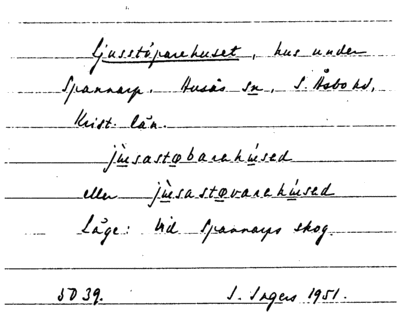 Ljusstöparehuset, hus under
Spannarp. Ausås sn, S. Åsbo hd,
Krist. län.
jùsastøbarehùsed
eller jùsastøvarehùsed
Läge: vid Spannarps skog
5D39. S. Ingers 1951.